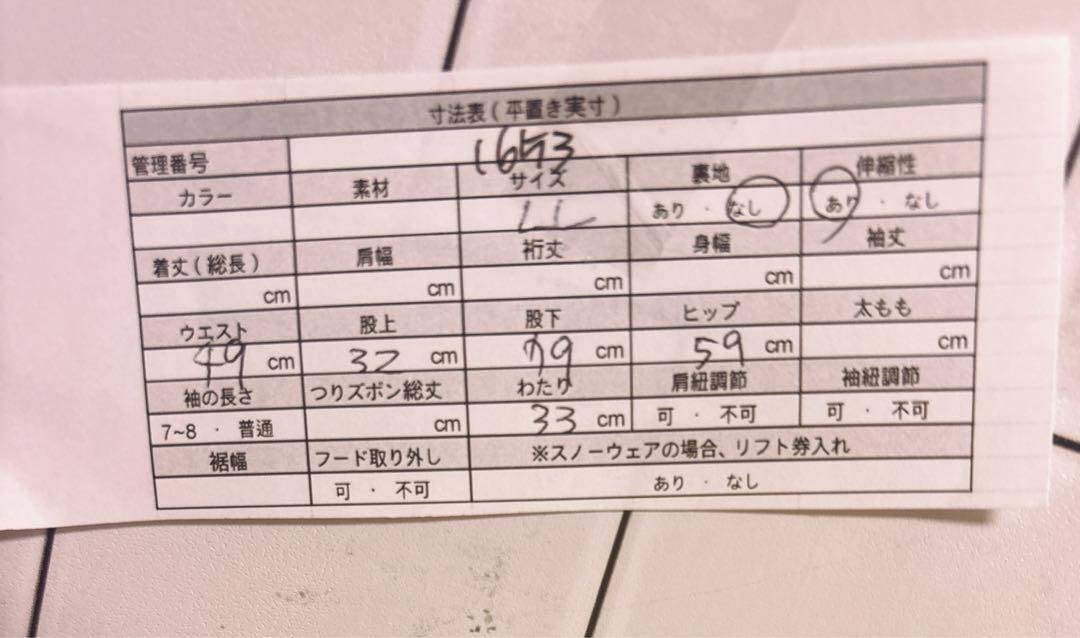 寸法表(平置き実寸)
管理番号 1653
カラー 素材 サイズ 裏地 伸縮性
LL あり ・ なし あり ・ なし
着丈(総長) 肩幅 裄丈 身幅 袖丈
cm cm cm cm cm
ウエスト 股上 股下 ヒップ 太もも
49 cm 32 cm 79 cm 59 cm cm
袖の長さ つりズボン総丈 わたり 肩紐調節 袖紐調節
7~8 ・ 普通 cm 33 cm 可 ・ 不可 可 ・ 不可
裾幅 フード取り外し ※スノーウェアの場合、リフト券入れ
可 ・ 不可 あり ・ なし